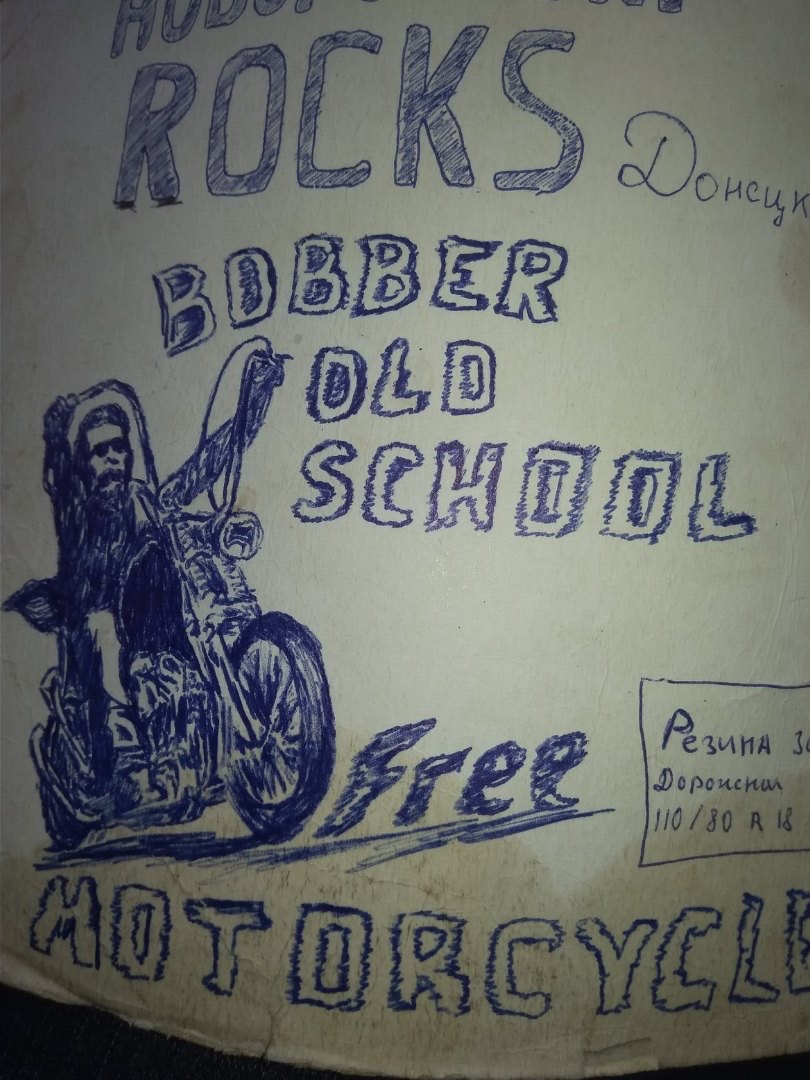 ROCKS
Донецк
BOBBER
OLD
SCHOOL
Free
Резина
Дорожная
110/80 R 18
MOTORCYCLE